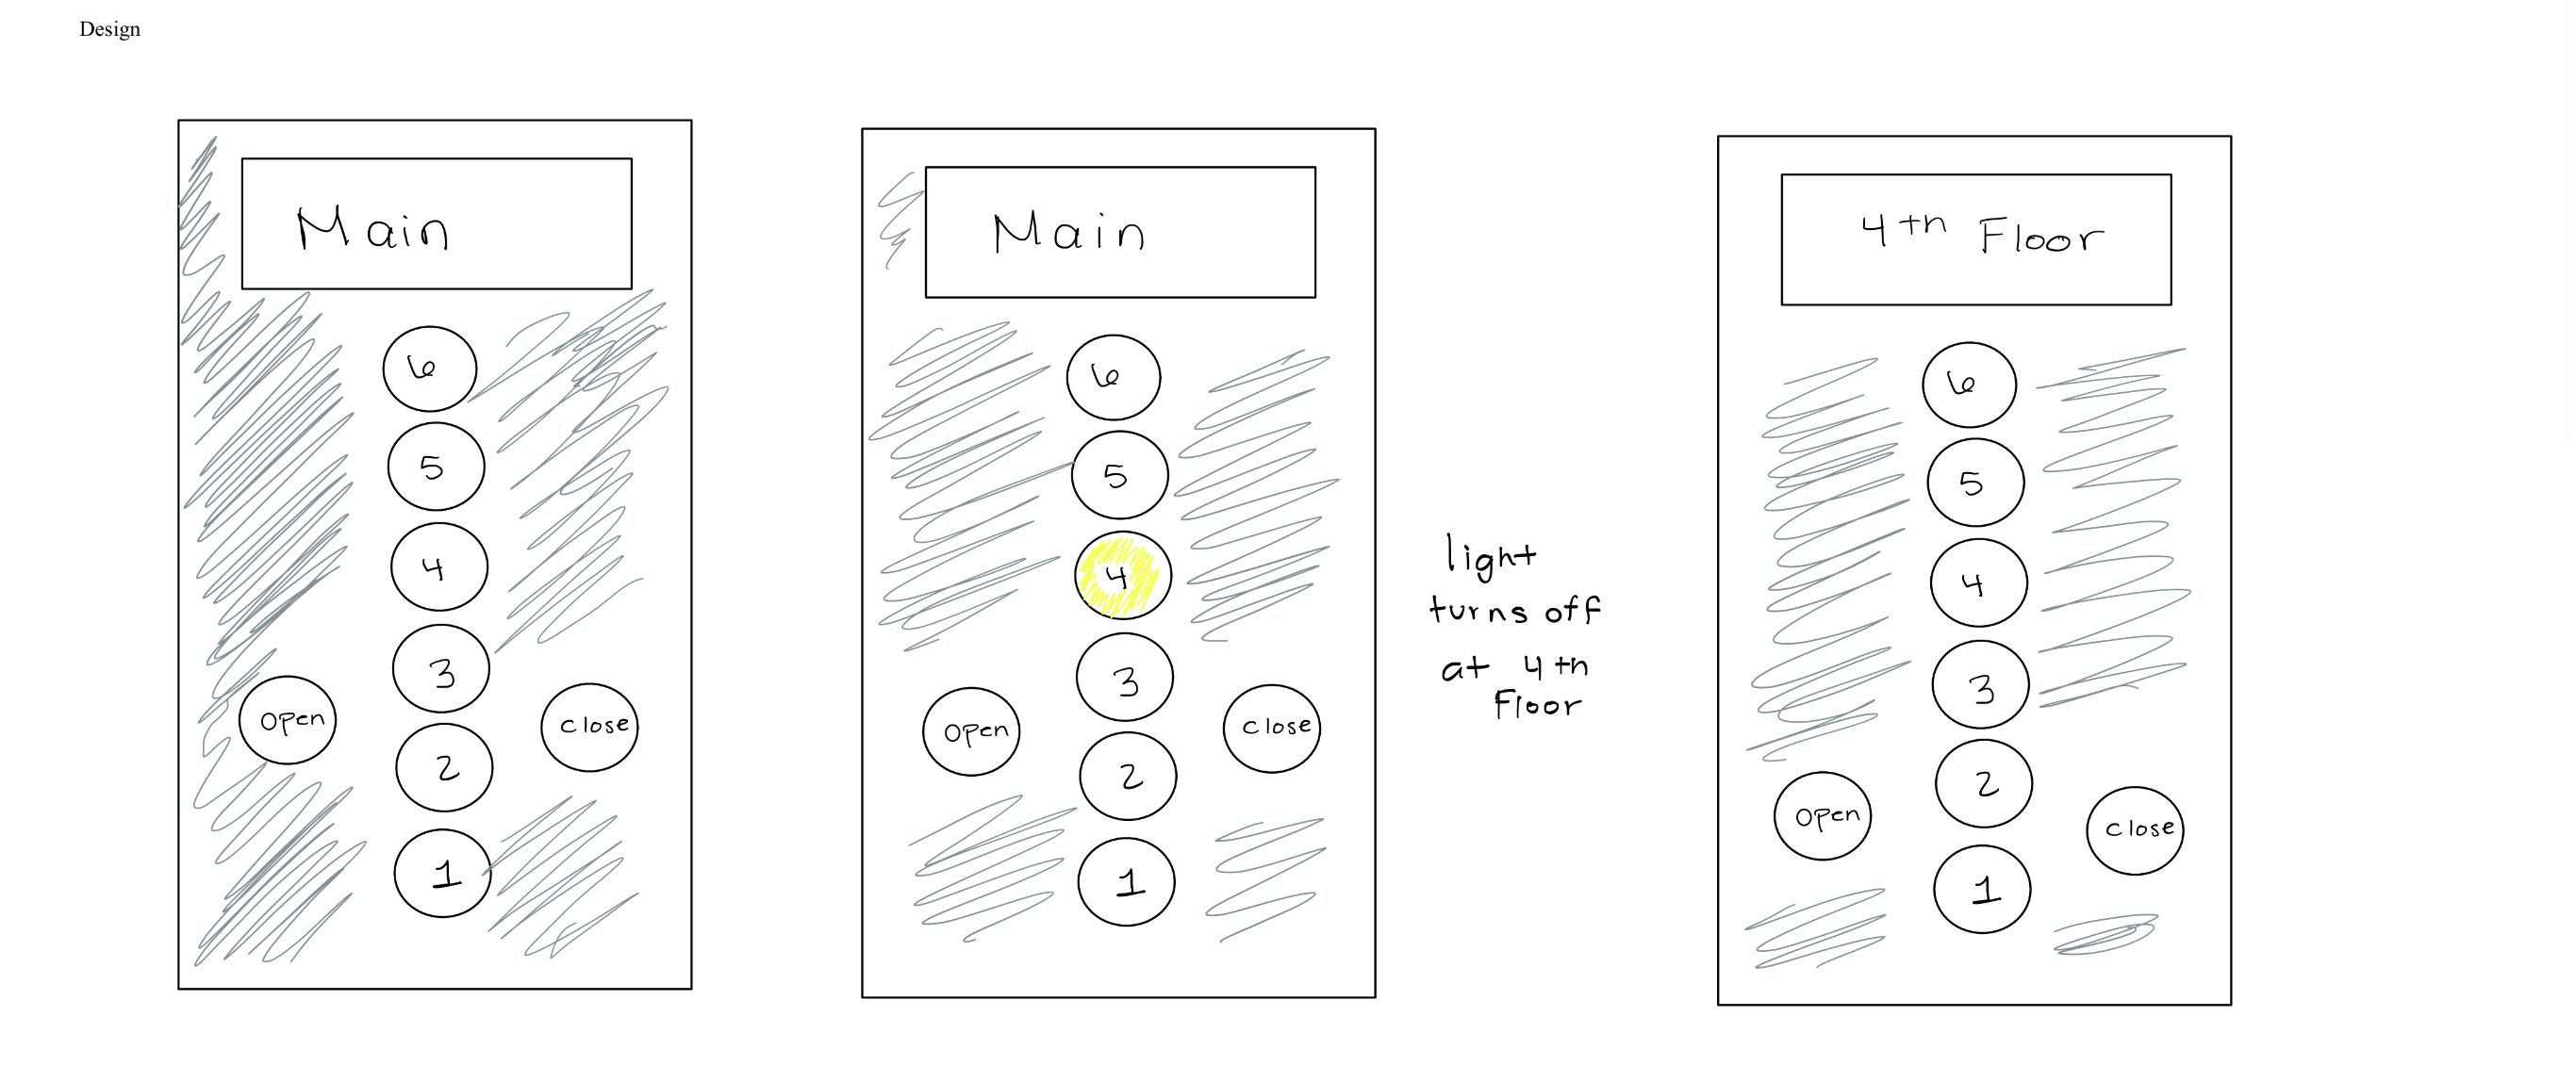 Design
Main
6
5
4
3
Open
Close
2
1
Main
6
5
4
3
Open
Close
2
1
light
turns off
at 4th
Floor
4th Floor
6
5
4
3
2
Open
Close
1